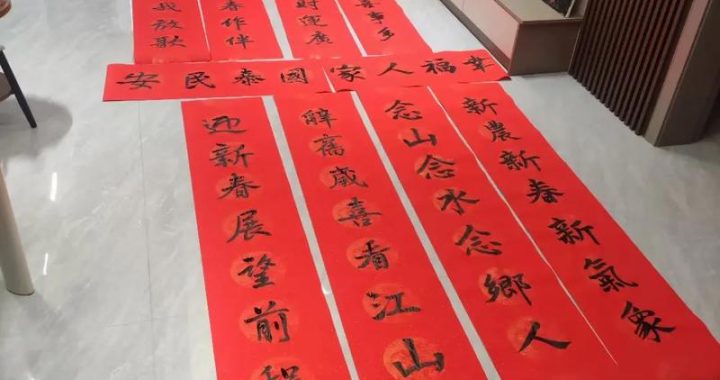 喜事多
財運廣
春作伴
我放歌
幸福人家
國泰民安
新農新春新氣象
念山念水念鄉人
辭舊歲喜看江山
迎新春展望前